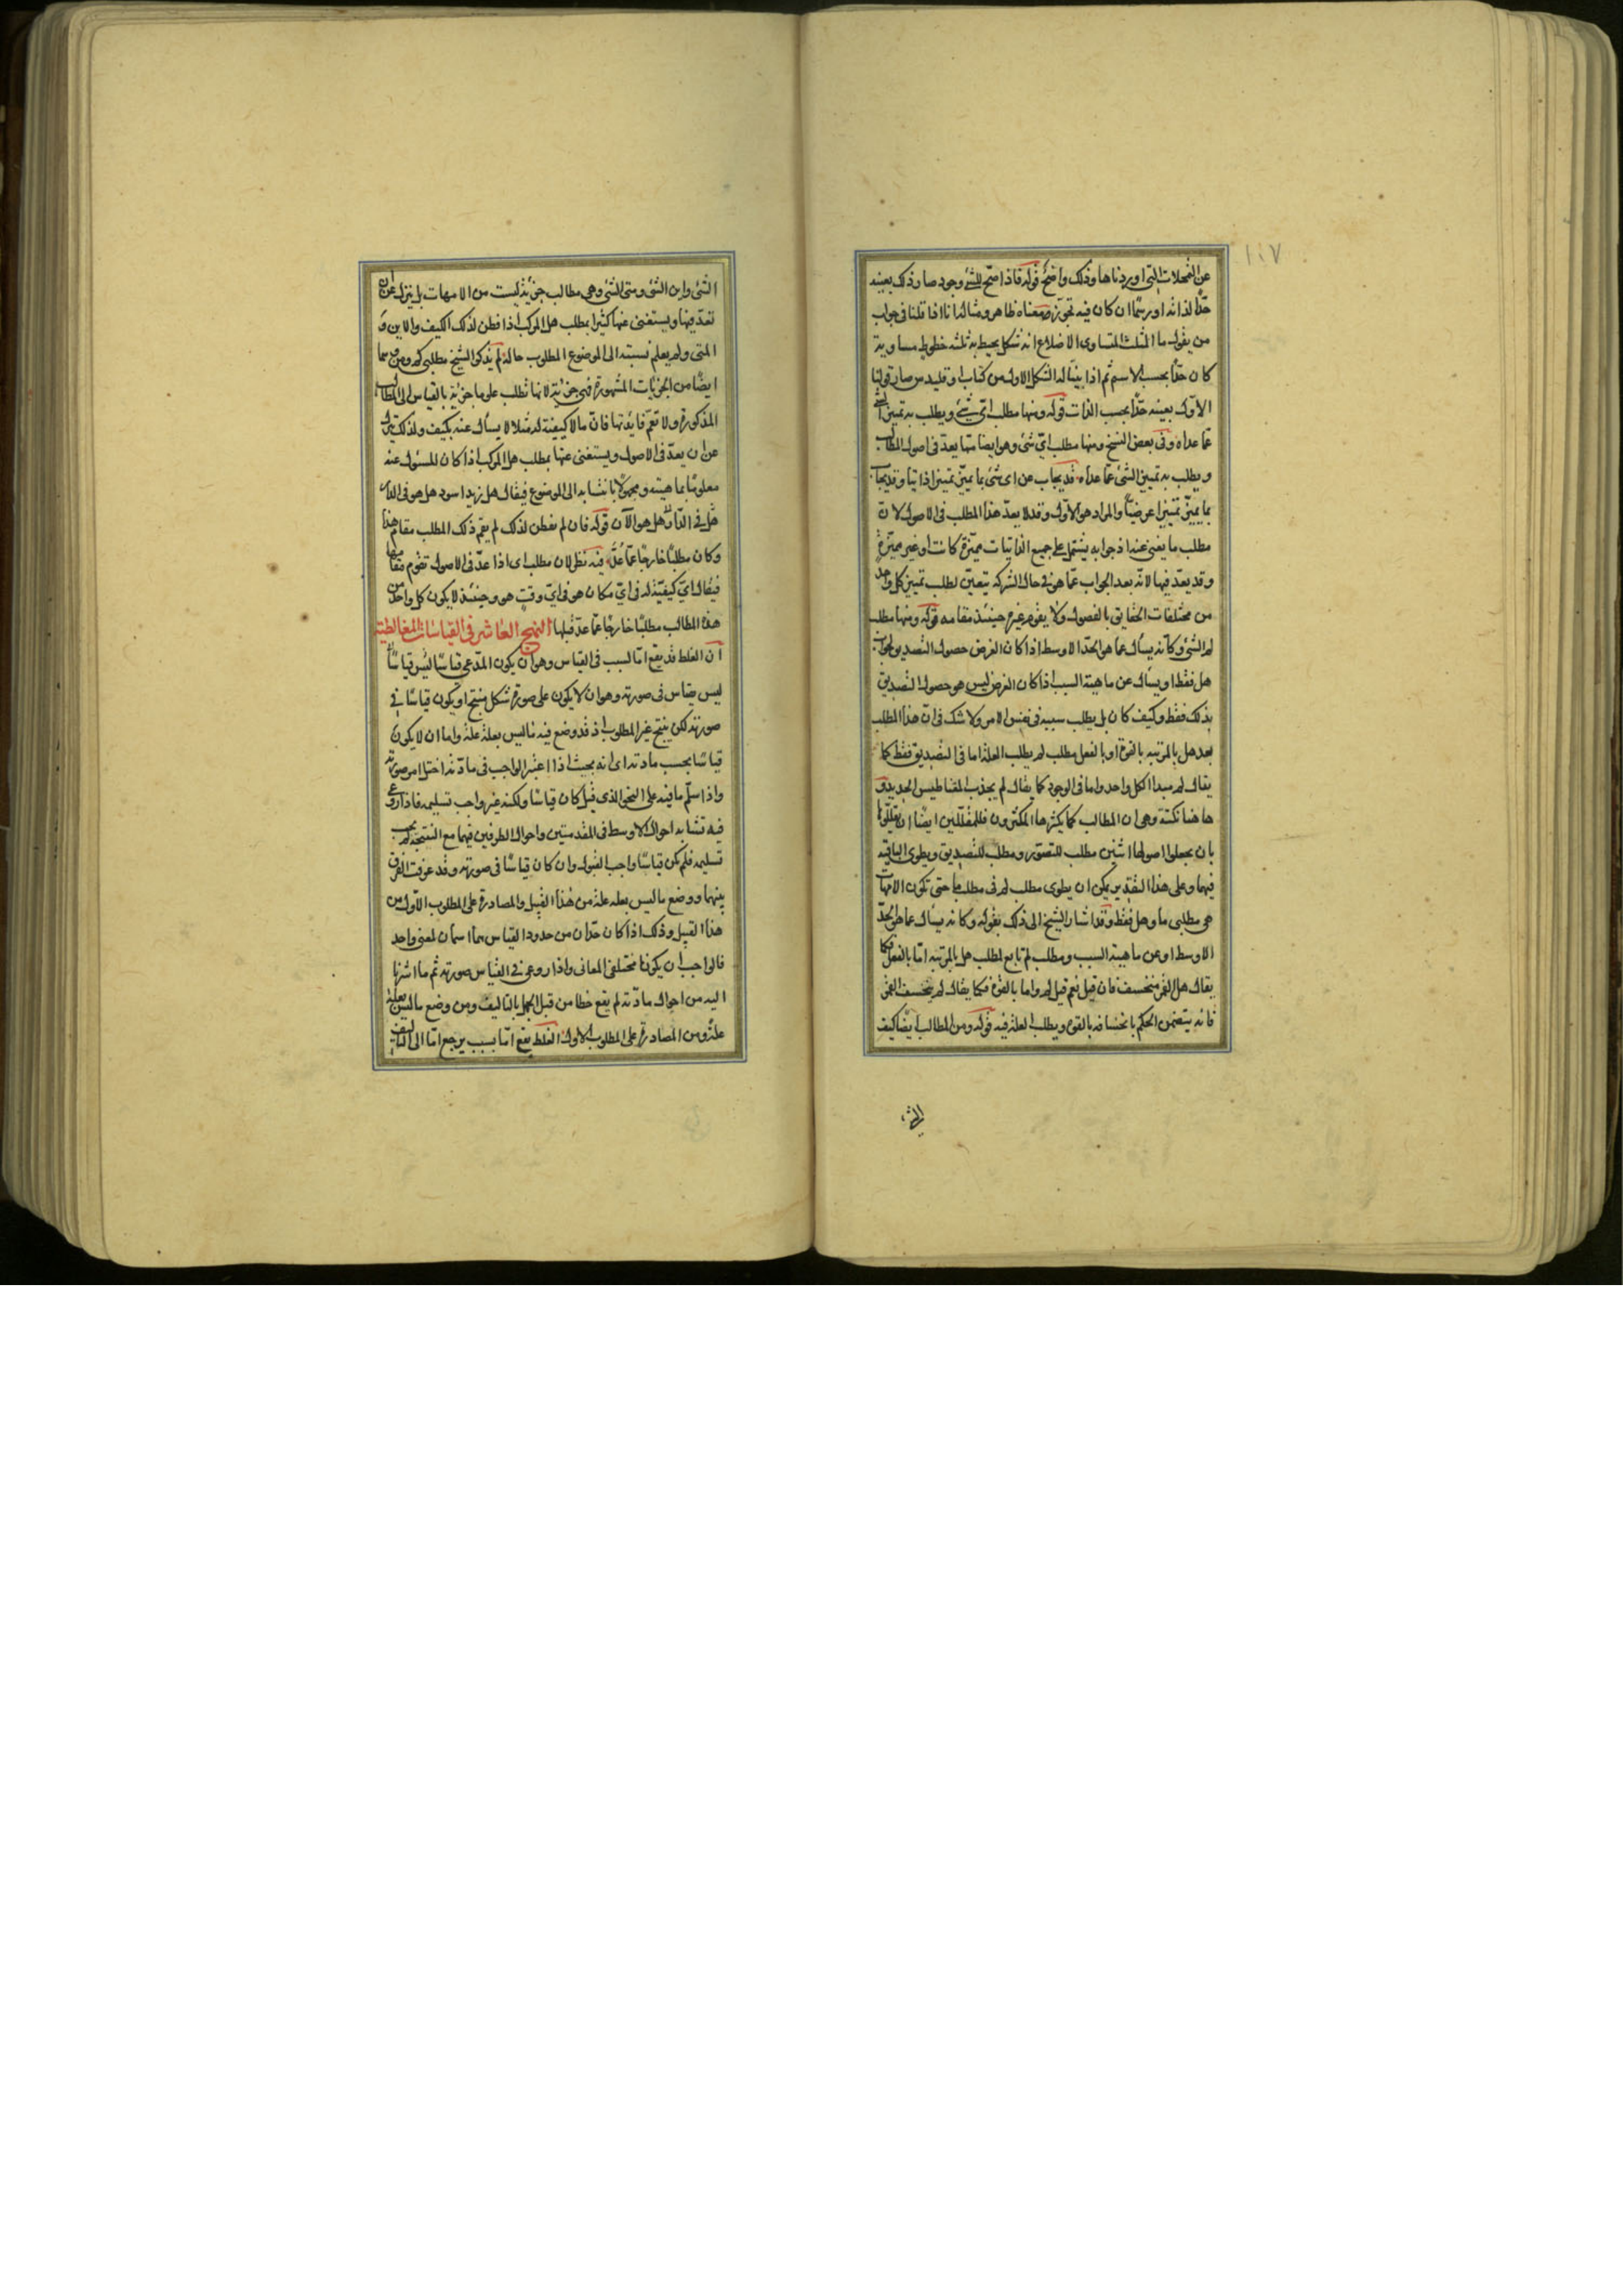 ١٠٧
عن المحلات التى اوردناها وذلك واضح قوله فاذا صح للشئ وجود صار ذلك بعينه
حدًّا لذاته اورسمًا ان كان فيه تجوّز معناه ظاهر ومثاله انا اذا قلنا فى جواب
من يقول ما المثلث المتساوى الاضلاع انه شكل يحيط به ثلثه خطوط مساوية
كان حدًّا بحسب الاسم ثم اذا بينّا له الشكل الاول من كتاب اوقليدس صار قولنا
الاوّل بعينه حدًّا بحسب الذات قوله ومنها مطلب اىّ شئ ويطلب به تميين الشئ
عمّا عداه وفى بعض النسخ ومنها مطلب اىّ شئ وهو ايضا مما يعدّ فى اصول المطالب
ويطلب به تميين الشئ عمّا عداه قد يجاب عن اى شئ بما يميّز تميزا ذاتيا وقد يجاب
بما يميّز تميّزا عرضيًّا والمراد هو الاوّل وقد لا يعدّ هذا المطلب فى الاصول لان
مطلب ما يغنى عنه اذ جوابه يشتمل على جميع الذاتيات مميّزة كانت او غير مميّزة
وقد يعدّ فيها لانّه بعد الجواب عمّا هو فى حال الشركه يتعين لطلب تميز كل واحد
من مختلفات الحقايق بالفصول ولا يقوم غيره حينئذ مقامه قوله ومنها مطلب
لم الشئ وكانّه يسأل عما هو الحدّ الاوسط اذا كان الغرض حصول التصديق بجواب
هل فقط او يسأل عن ماهية السبب اذا كان الغرض ليس هو حصول التصديق
بذلك فقط وكيف كان بل يطلب سببه فى نفس الامر ولا شك فى انّ هذا المطلب
بعد هل بالمرتبه بالقوة او بالفعل مطلب لم يطلب العلة اما فى التصديق فقط كما
يقال لم مبدا الكل واحد واما فى الوجود كما يقال لم يجذب المغناطيس الحديد و
هاهنا نكتة وهى ان المطالب كما يكثرها المكثرون فللمقللين ايضا ان يقللوها
بان يجعلوا اصولها اثنين مطلب للتصور ومطلب للتصديق ويطوى الباقيه
فيهما وعلى هذا التقدير يمكن ان يطوى مطلب لم فى مطلب ما حتى تكون الامهات
هى مطلبى ما وهل فقط وقد اشار الشيخ الى ذلك بقوله وكانه يسأل عما هو الحدّ
الاوسط او عن ماهية السبب ومطلب لم تابع لمطلب هل بالمرتبه امّا بالفعل فكما
يقال هل القمر منخسف فان قيل نعم قيل لم واما بالقوة فكما يقال لم ينخسف القمر
فانه يتضمن الحكم بانخسافه بالقوى ويطلب العلة فيه قوله ومن المطالب ايضا كيف
الشئ واين الشئ ومتى الشئ وهى مطالب جزئية ليست من الامهات بل ينزل عن ان
تعدّ فيها ويستغنى عنها كثيرا بمطلب هل المركب اذا فطن لذلك الكيف والاين و
المتى ولم يعلم نسبته الى الموضوع المطلوب حاله لم يذكر الشيخ مطلبى كم ومن وهما
ايضًا من الجزئيات المشهورة فهى جزئية لانها تطلب علما جزئيا بالقياس الى المطالب
المذكورة ولا تعمّ فايدتها فانّ ما لا كيفية له مثلا لا يسأل عنه بكيف ولذلك ينزل
عن ان يعدّ فى الاصول ويستغنى عنها بمطلب هل المركب اذا كان المسئول عنه
معلومًا بماهيته ومجهولا بانتسابه الى الموضوع فيقال هل زيد اسود هل هو فى الدار
هل فى الدار هل هو الآن قوله فان لم يفطن لذلك لم يقم ذلك المطلب مقام هذا
وكان مطلبًا خارجًا عمّا عُدّ فيه نظر لان مطلب اى اذا عدّ فى الاصول تقوم مقامها
فيقال اىّ كيفيّة له فى اىّ مكان هو فى اىّ وقت هو وحينئذ لا يكون كل واحد من
هذه المطالب مطلبًا خارجًا عمّا عدّ قبلها النهج العاشر فى القياسات المغالطية
انّ الغلط قد يقع امّا لسبب فى القياس وهو ان يكون المدّعى قياسًا ليس قياسًا
ليس بقياس فى صورته وهو ان لا يكون على صورة شكل منتج او يكون قياسًا فى
صورته لكن ينتج غير المطلوب اذ قد وضع فيه ما ليس بعلة علة واما ان لا يكون
قياسًا بحسب مادته اى انه بحيث اذا اعتبر الواجب فى مادّته اختل امر صورته
واذا سلّم ما فيه على النحو الذى قيل كان قياسًا ولكنه غير واجب تسليمه فاذا روعى
فيه تشابه احوال الاوسط فى المقدمتين واحوال الطرفين فيهما مع النتيجة لم يجب
تسليمه فلم يكن قياسًا واجب القبول وان كان قياسًا فى صورته وقد عرفت الفرق
بينهما ووضع ما ليس بعلة علة من هذا القبيل والمصادرة على المطلوب الاوّل من
هذا القبيل وذلك اذا كان حدّان من حدود القياس هما اسمان لمعنى واحد
فالواجب ان يكونا مختلفى المعانى واذا روعى فى القياس صورته ثم ما اشرنا
اليه من احوال مادّته لم يقع خطا من قبل الجهل بالتاليف ومن وضع ما ليس بعلة
علة ومن المصادرة على المطلوب الاول الغلط يقع امّا بسبب يرجع امّا الى التاليف